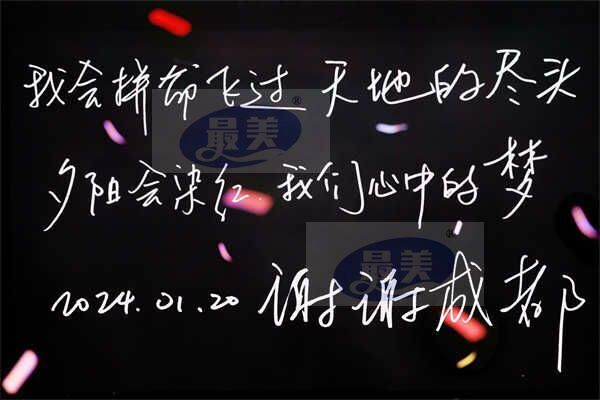 我会拼命飞过 天地的尽头
夕阳会染红 我们心中的梦
2024.01.20 谢谢成都
最美®
最美®